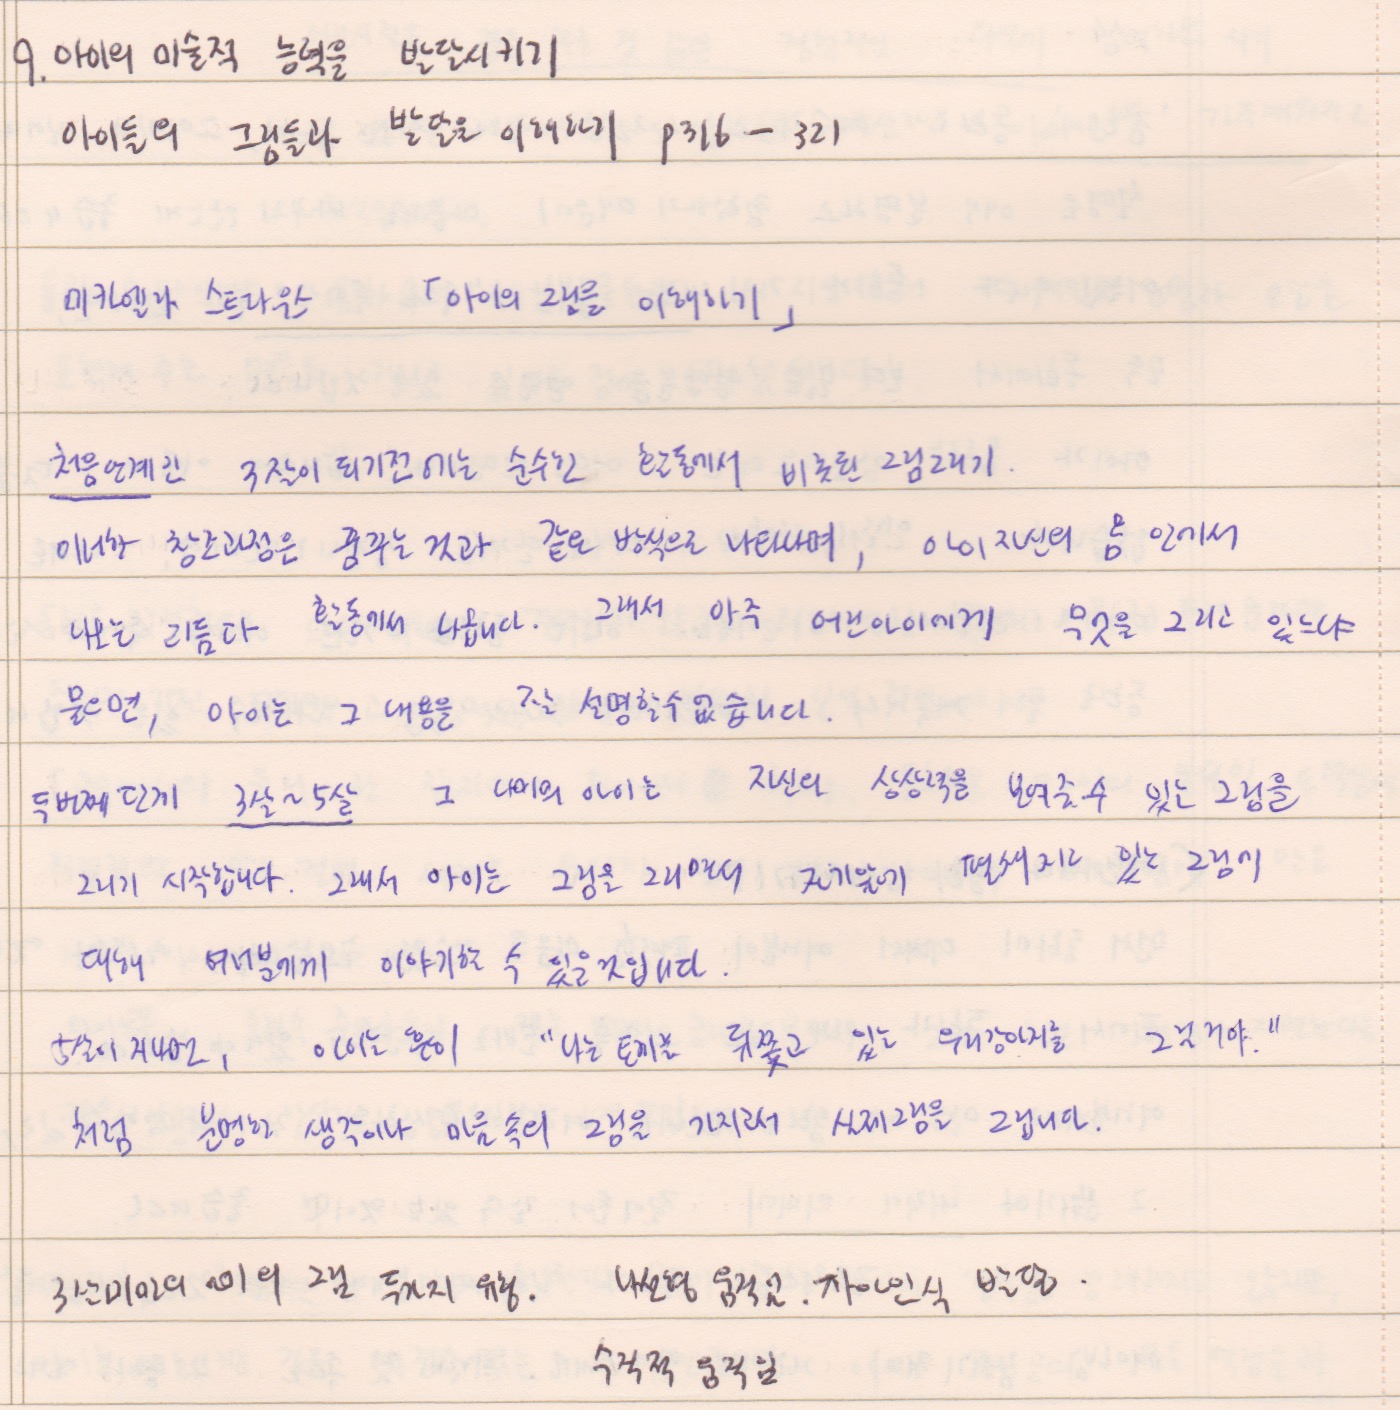 9. 아이의 미술적 능력을 발달시키기
아이들의 그림들과 발달을 이해하기 p316 - 321
미카엘라 스트라우스 「아이의 그림을 이해하기」
처음단계인 3살이 되기전에는 순수한 활동에서 비롯된 그림그리기.
이러한 창조과정은 꿈꾸는 것과 같은 방식으로 나타나며, 아이 자신의 몸 안에서
나오는 리듬과 활동에서 나옵니다. 그래서 아주 어린아이에게 무엇을 그리고 있느냐
물으면, 아이는 그 내용을 잘 설명할수 없습니다.
두번째 단계 3살~5살 그 나이의 아이는 자신의 상상력을 보여줄 수 있는 그림을
그리기 시작합니다. 그래서 아이는 그림을 그리면서 자기앞에 펼쳐지고 있는 그림에
대해 여러분에게 이야기할 수 있을것입니다.
5살이 지나면, 아이는 흔히 "나는 토끼를 뒤쫓고 있는 우리강아지를 그릴거야."
처럼 분명한 생각이나 마음속의 그림을 가지고서 실제그림을 그립니다.
3살미만의 아이의 그림 두가지 유형. 나선형 움직임. 자아인식 발달.
수직적 움직임